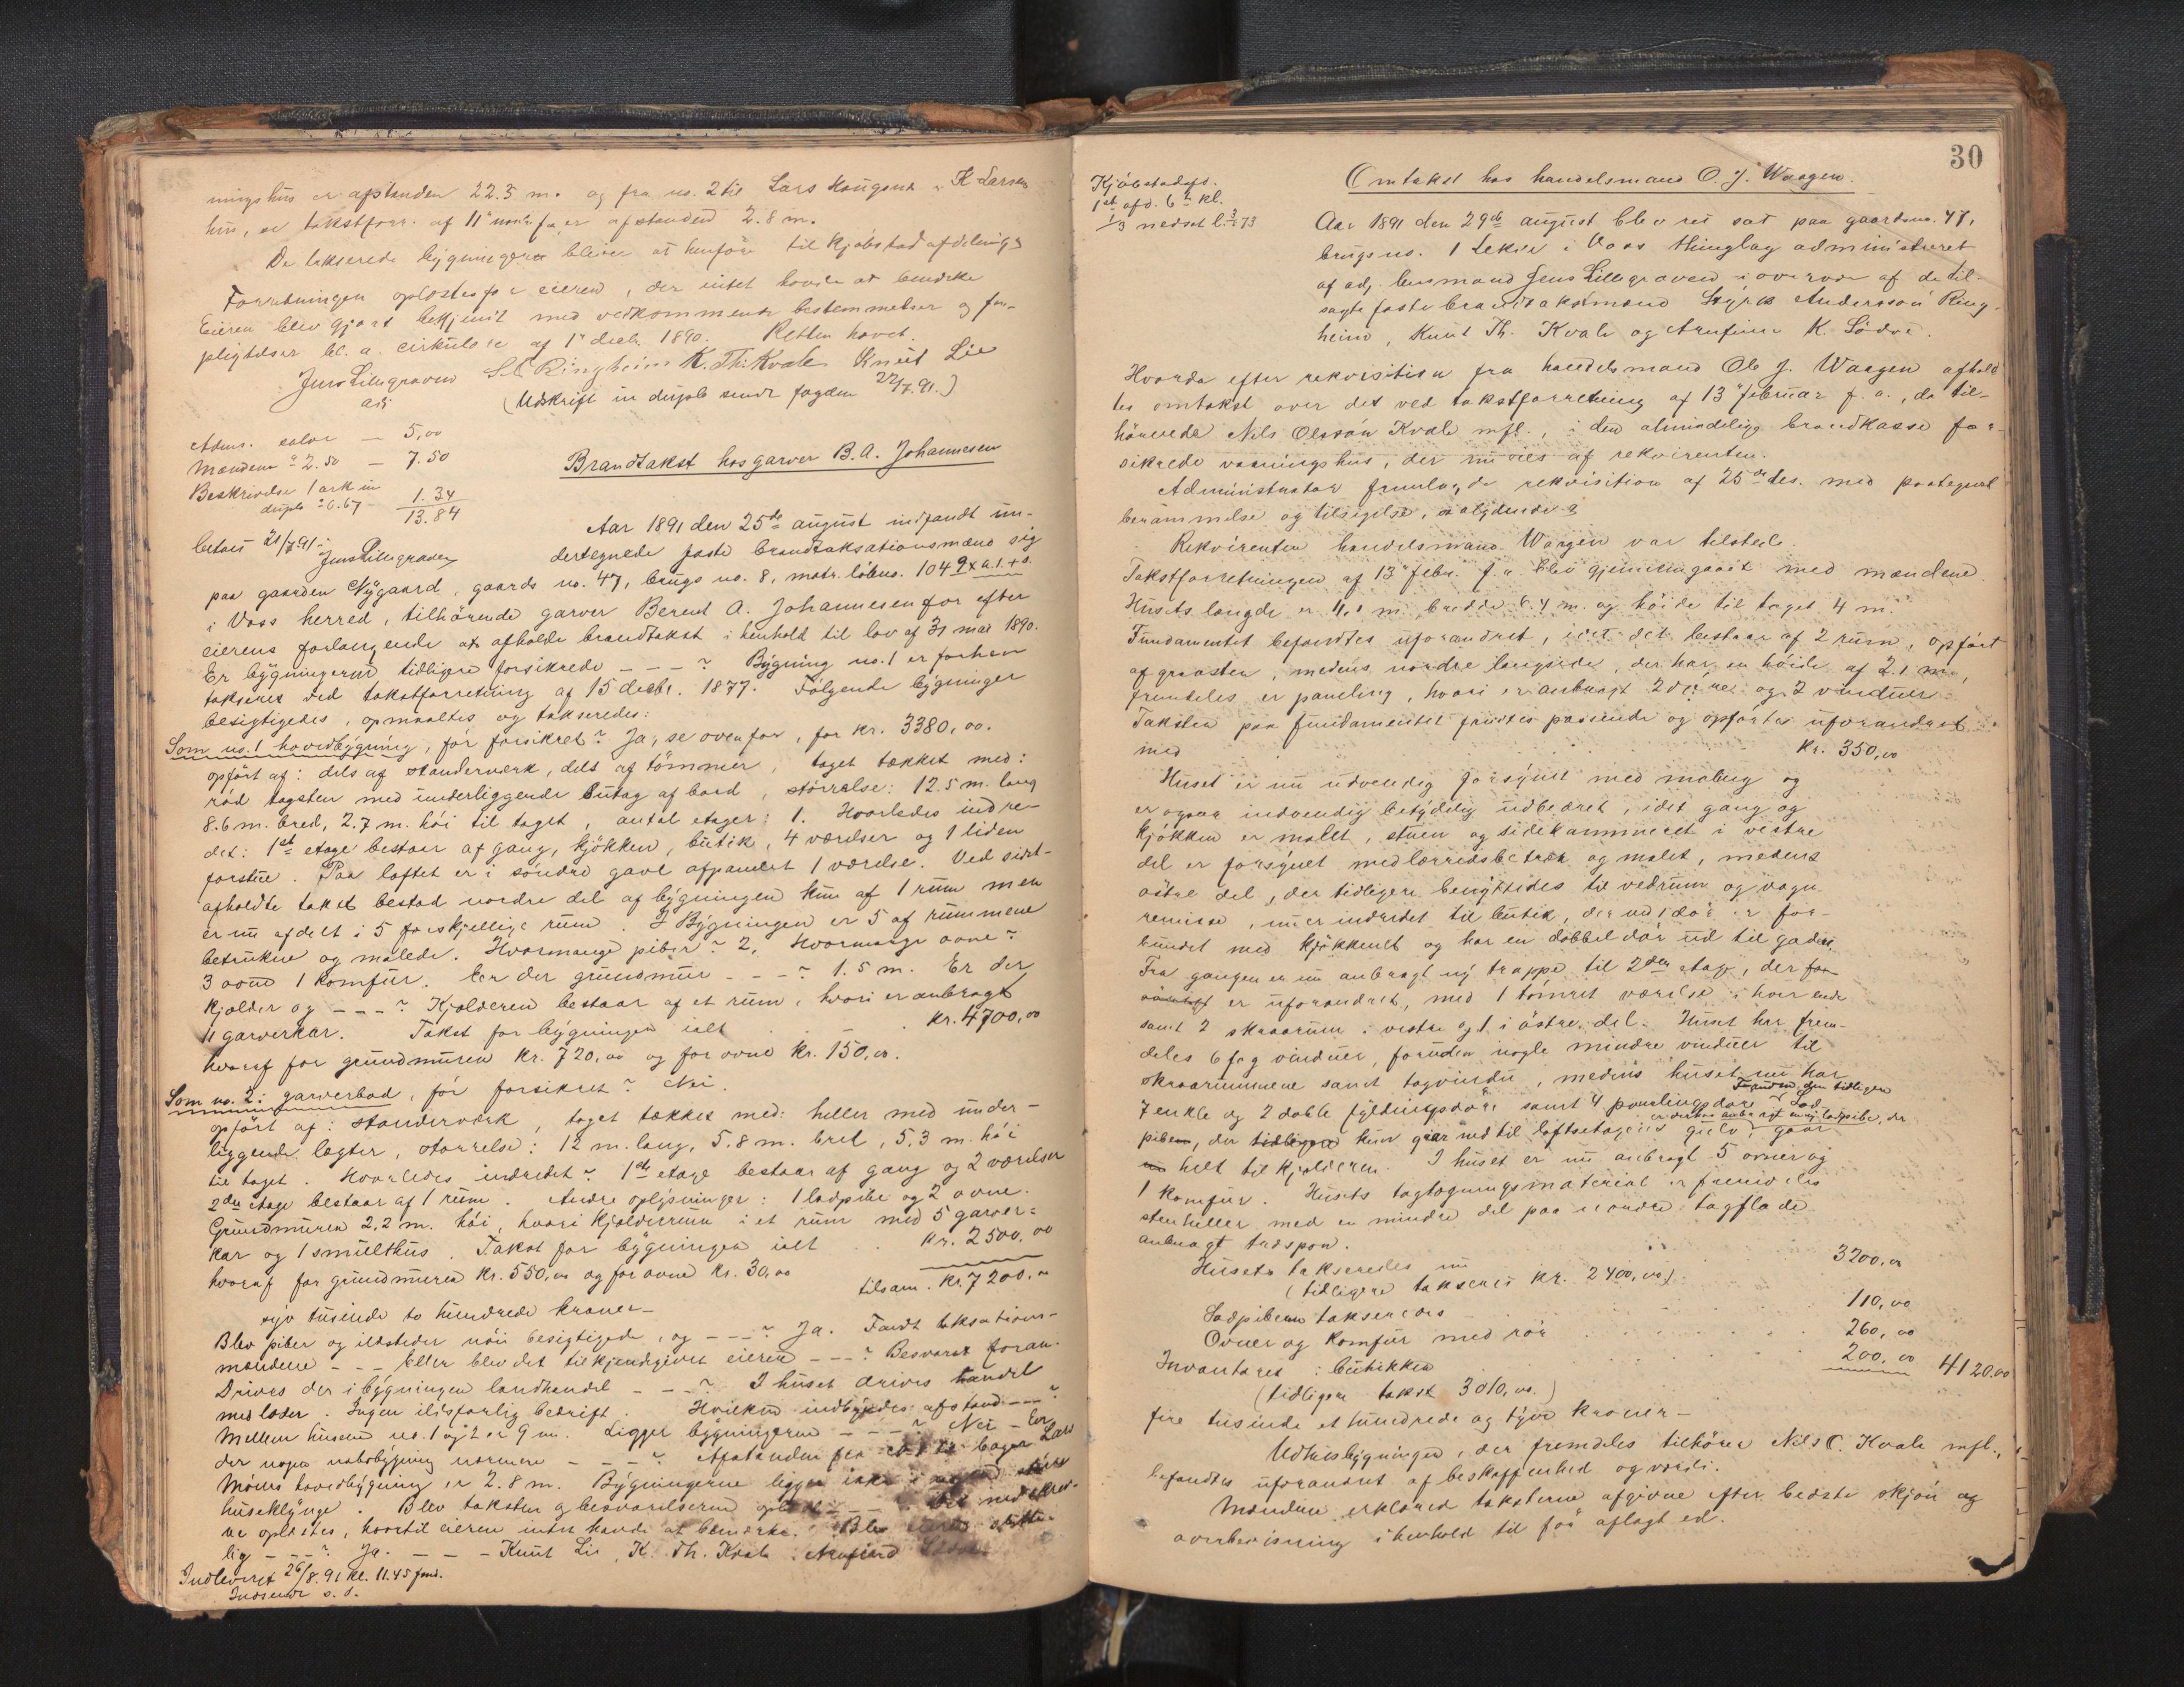 ningshus er afstanden 22.3 m. og fra no. 2 til Lars Haugens & K Larsens
hus, se takstforr. af 11te mdr. f. a. er afstanden 2.8 m.
De takserede bygninger bliver at henføre til kjøbstadafdelingen
Forretningen oplæstes for eieren, der intet havde at bemærke
Eieren blev gjort bekjendt med vedkommende bestemmelser og for-
pligtelser bl. a. cirkulære af 1te decb. 1890. Retten hævet.
Jens Lillegraven S. A. Ringheim K. Th. Kvale Knut Lie
adj
(Udskrift in duplo sendt fogden 22/7. 91.)
Adms. salær — 5,00
Mændene a 2.50 — 7.50
Beskrivelse 1 ark in
duplo a 0.67 – 1.34
13.84
betalt 21/7 91
Jens Lillegraven
Brandtakst hos garver B. A. Johannesen
Aar 1891 den 25de august indfandt un-
dertegnede faste brandtaksationsmænd sig
paa gaarden Nygaard, gaards no. 47, brugs no. 8, matr. løbno. 104
i Voss herred, tilhørende garver Berent A. Johannesen for efter
eierens forlangende at afholde brandtakst i henhold til lov af 31 mai 1890.
Er bygningerne tidligere forsikrede – – – ? Bygning no. 1 er forhen
takseret ved takstforretning af 15 decbr. 1877. Følgende bygninger
besigtigedes, opmaaltes og takseredes:
Som no. 1 hovedbygning, før forsikret? Ja, se ovenfor, for kr. 3380,00.
opført af: dels af standerværk, dels af tømmer, taget tækket med:
rød tagsten med underliggende sutag af bord, størrelse: 12.5 m. lang
8.6 m. bred, 2.7 m. høi til taget, antal etager: 1. Hvorledes indre-
det: 1ste etage bestaar af gang, kjøkken, butik, 4 værelser og 1 liden
forstue. Paa loftet er i søndre gavl afpanelet 1 værelse. Ved sidst-
afholdte takst bestod nordre del af bygningen kun af 1 rum men
er nu afdelt i 5 forskjellige rum. I Bygningen er 5 af rummene
betrukne og malede. Hvormange piber? 2, Hvormange ovne?
3 ovne 1 komfur. Er der grundmur – – – ? 1.5 m. Er der
kjelder og – – – ? Kjelderen bestaar af et rum, hvori er anbragt
11 garverkar. Takst for bygningen ialt . . . kr. 4700,00
hvoraf for grundmuren kr. 720,00 og for ovne kr. 150,00.
Som no. 2: garverbod, før forsikret? Nei.
opført af: standerværk, taget tækket med: heller med under-
liggende lægter, størrelse: 12 m. lang, 5.8 m. bred, 5.3 m. høi
til taget. Hvorledes indredet? 1ste etage bestaar af gang og 2 værelser
2den etage bestaar af 1 rum. Andre oplysninger: 1 ladpibe og 2 ovne.
Grundmuren 2,2 m. høi, hvori kjelderrum i et rum med 5 garver-
kar og 1 smulthus. Takst for bygningen ialt . . kr. 2500,00
hvoraf for grundmuren kr. 550,00 og for ovne kr. 30,00
tilsam. kr. 7200,00
syv tusinde to hundrede kroner –
Blev piber og ildsteder nøie besigtigede, og – – – ? Ja. Fandt taksations-
mændene – – – Eller blev det tilkjendegivet eieren – – – ? Besvaret foran.
Drives der i bygningen landhandel – – – ? I huset drives handel
med læder. Ingen ildsfarlig bedrift Hvilken indbyrdes afstand – – – ?
Mellem husene no. 1 og 2 er 9 m. Ligger bygningerne – – – ? Nei – Er
der nogen nabobygning nærmere – – – ? Afstanden fra no. 1 til bager Lars
Møens hovedbygning er 2.8 m. Bygningerne ligger ikke i nogen større
huseklynge. Blev taksten og besvarelserne oplæst – – – . Det nedskrev-
ne oplæstes, hvortil eieren intet havde at bemærke. Blev eieren
lig – – – ? Ja. – – – Knut Lie, K. Th. Kvale, Arnfind
Indleveret 26/8. 91 kl. 11.45 fmd.
Indsendt s. d.
30
Kjøbstadafd.
1ste afd. 6te kl.
1/3 nedsat
Omtakst hos handelsmand O. J. Waagen.
Aar 1891 den 29de august blev ret sat paa gaardsno. 47,
brugs no. 1 Lekve i Voss thinglag administreret
af adj. lensmand Jens Lillegraven i overvær af de til-
sagte faste brandtakstmænd Styrk Anderssøn Ring-
heim, Knut Th. Kvale og Arnfinn K. Lødve.
Hvorda efter rekvisition fra handelsmand Ole J. Waagen afhold-
tes omtakst over det ved takstforretning af 13de februar f. a., da til-
hørende Nils Olssøn Kvale mfl., i den almindelige brandkasse for-
sikrede vaaningshus, der nu eies af rekvirenten.
Administrator fremlagde rekvisition af 25de ds. med paategnet
berammelse og tilsigelse, saalydende:
Rekvirenten handelsmand Waagen var tilstede.
Takstforretningen af 13de febr. f. a. blev gjennemgaaet med mændene.
Husets længde er 11,1 m, bredde 6.4 m. og høide til taget 4 m.
Fundamentet befandtes uforandret, idet det bestaar af 2 rum, opført
af graasten, medens nordre langside, der har en høide af 2.1 m.,
fremdeles er paneling, hvori er anbragt 2 døre og 2 vinduer.
Taksten paa fundamentet fandtes passende og opførtes uforandret
med . . . kr. 350,00
Huset er nu udvendig forsynet med maling og
er ogsaa indvendig betydelig udbedret, idet gang og
kjøkken er malet, stuen og sidekammeret i vestre
del er forsynet med lærredsbetræk og malet, medens
østre del, der tidligere benyttedes til vedrum og vogn-
remisse, nu er indredet til butik, der ved 1 dør er for-
bundet med kjøkkenet og har en dobbel dør ud til gaden.
Fra gangen er nu anbragt ny trappe til 2den etage, der for-
er uforandret, med 1 tømret værelse i hver ende
samt 2 skraarum i vestre og 1 i østre del. Huset har frem-
deles 6 fag vinduer, foruden nogle mindre vinduer til
skraarummene samt tagvindu, medens huset nu har
7 enkle og 2 doble fyldingsdøre samt 4 panelingsdøre. Foruden den tidligere Lad-
piben, der tidligere kun gaar ned til loftsetagens gulv, er derhos anbragt en ny ladpibe, der gaar
helt til kjelderen. I huset er nu anbragt 5 ovner og
1 komfur. Husets tagtægningsmaterial er fremdeles
stenheller med en mindre del paa nordre tagflade
anbragt tadspon.
Husets takseredes nu . . . 3200,00
(tidligere takseret kr. 2400,00)
Ladpiben takseredes . . . 110,00
Ovner og komfur med rør . . . 260,00
Inventaret i butikken . . . 200,00 4120.00
(tidligere takst 3010,00.)
fire tusinde et hundrede og tyve kroner –
Udhusbygningen, der fremdeles tilhører Nils O. Kvale mfl.,
befandtes uforandret af beskaffenhed og værdi.
Mændene erklæred taksterne afgivne efter bedste skjøn og
overbevisning i henhold til før aflagt ed.